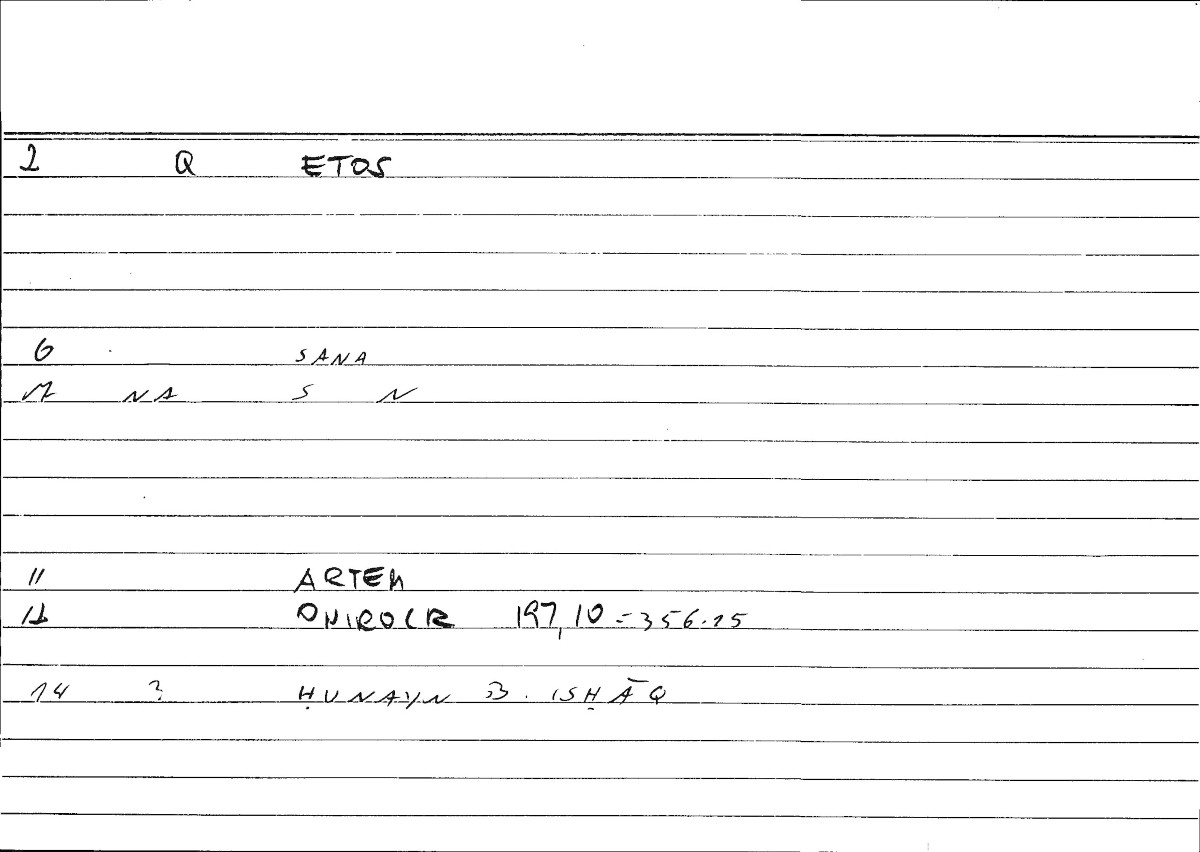 2 Q ETOS
6 SANA
NA S N
11 ARTEM
ONIROCR 197,10 = 356.15
14 ? ḤUNAYN B. ISḤĀQ